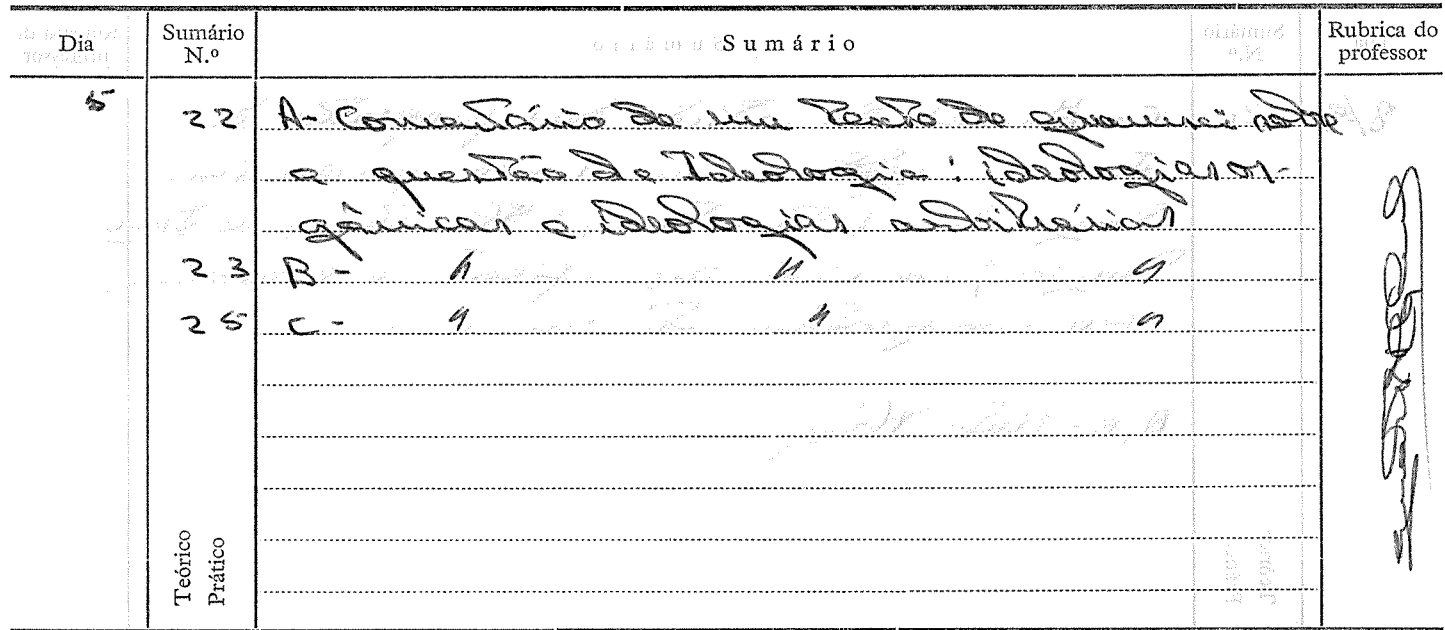 Dia Sumário N.º Sumário Rubrica do professor
5 22 A- Comentário de um texto de Gramsci sobre
a questão da Ideologia: ideologias or-
gânicas e ideologias arbitrárias
23 B- " " "
25 C- " " "
Teórico
Prático